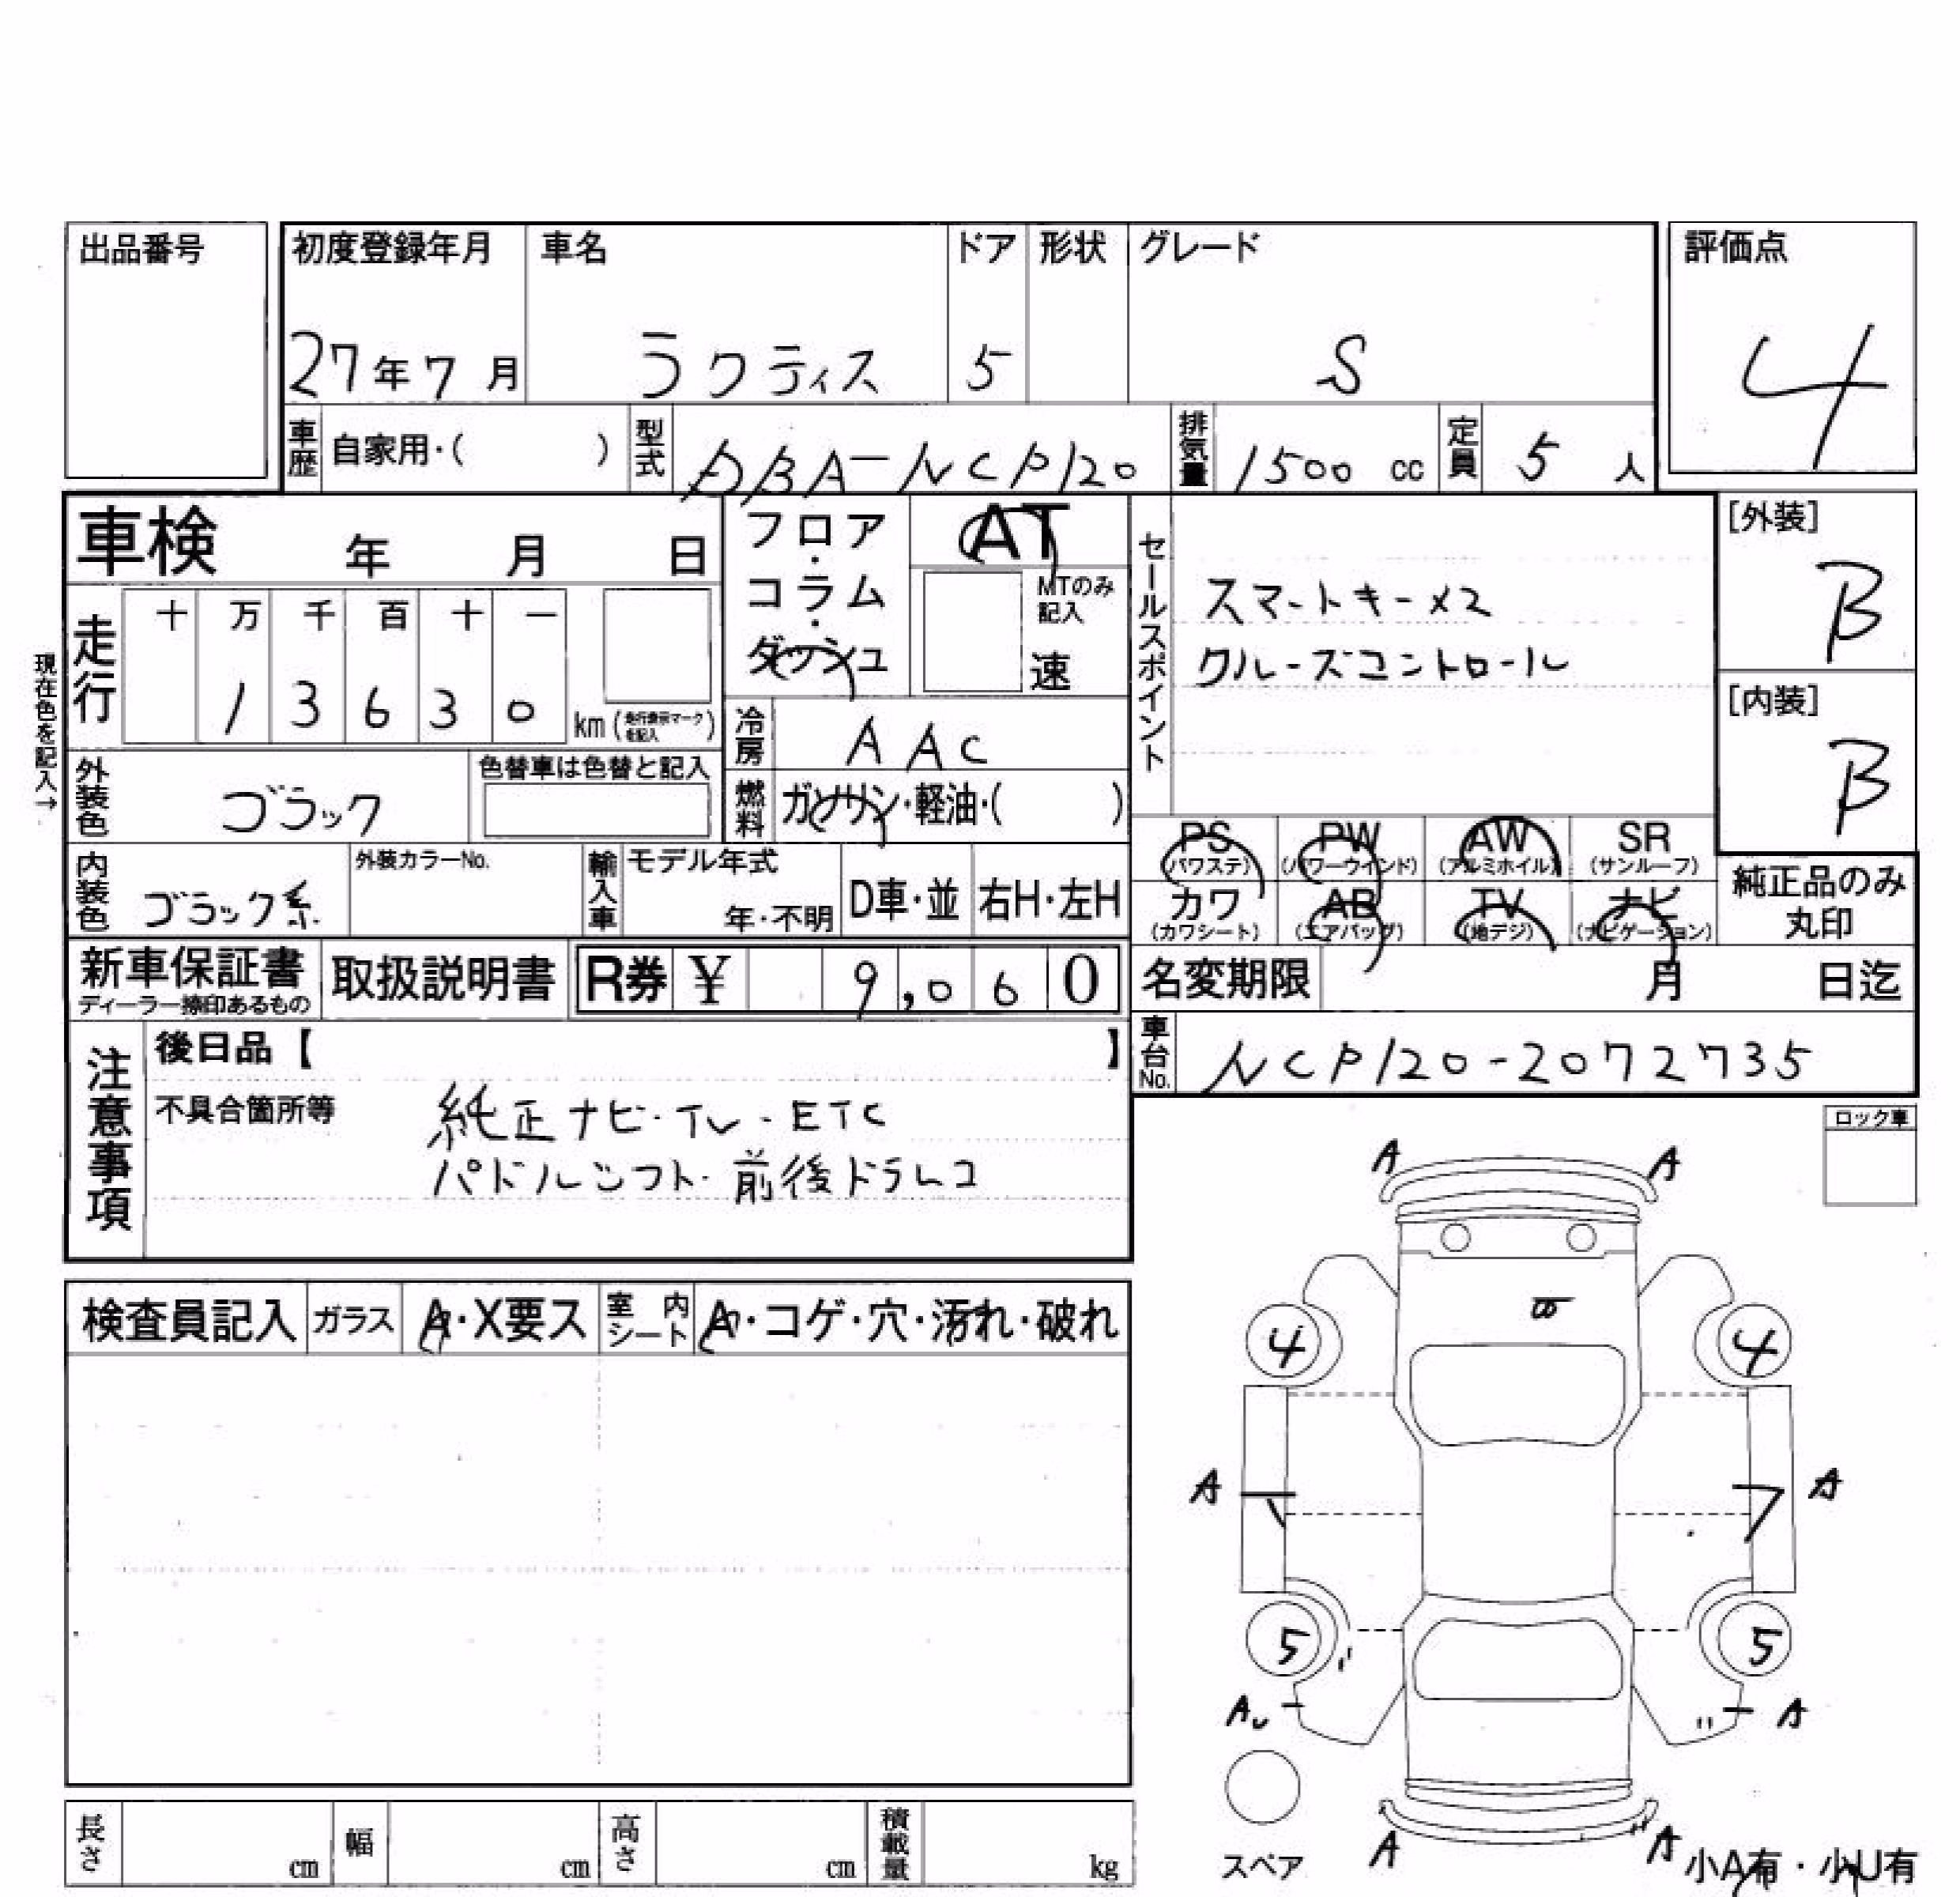 出品番号
初度登録年月 車名 ドア 形状 グレード 評価点
27年7月 ラクティス 5 S 4
車歴 自家用・( ) 型式 DBA-NCP120 排気量 1500 cc 定員 5 人
車検 年 月 日
フロア・コラム・ダッシュ AT
MTのみ記入
速
セールスポイント
スマートキーX2
クルーズコントロール
[外装]
B
[内装]
B
現在色を記入→
走行 十 万 千 百 十 一
1 3 6 3 0 km (走行表示マークを記入)
冷房 AAC
外装色 ブラック 色替車は色替と記入
燃料 ガソリン・軽油・( )
内装色 ブラック系 外装カラーNo. 輸入車 モデル年式 年・不明 D車・並 右H・左H
PS (パワステ) PW (パワーウインド) AW (アルミホイル) SR (サンルーフ)
カワ (カワシート) AB (エアバッグ) TV (地デジ) ナビ (ナビゲーション)
純正品のみ
丸印
新車保証書 取扱説明書 R券 ¥ 9,060
ディーラー捺印あるもの
名変期限 月 日迄
車台No. NCP120-2072735
注意事項
後日品【 】
不具合箇所等 純正ナビ・TV・ETC
パドルシフト・前後ドラレコ
ロック車
A A
検査員記入 ガラス A・X要ス 室内シート A・コゲ・穴・汚れ・破れ
4 4
A A
5 5
AU A
スペア
A A
小A有・小U有
長さ cm 幅 cm 高さ cm 積載量 kg